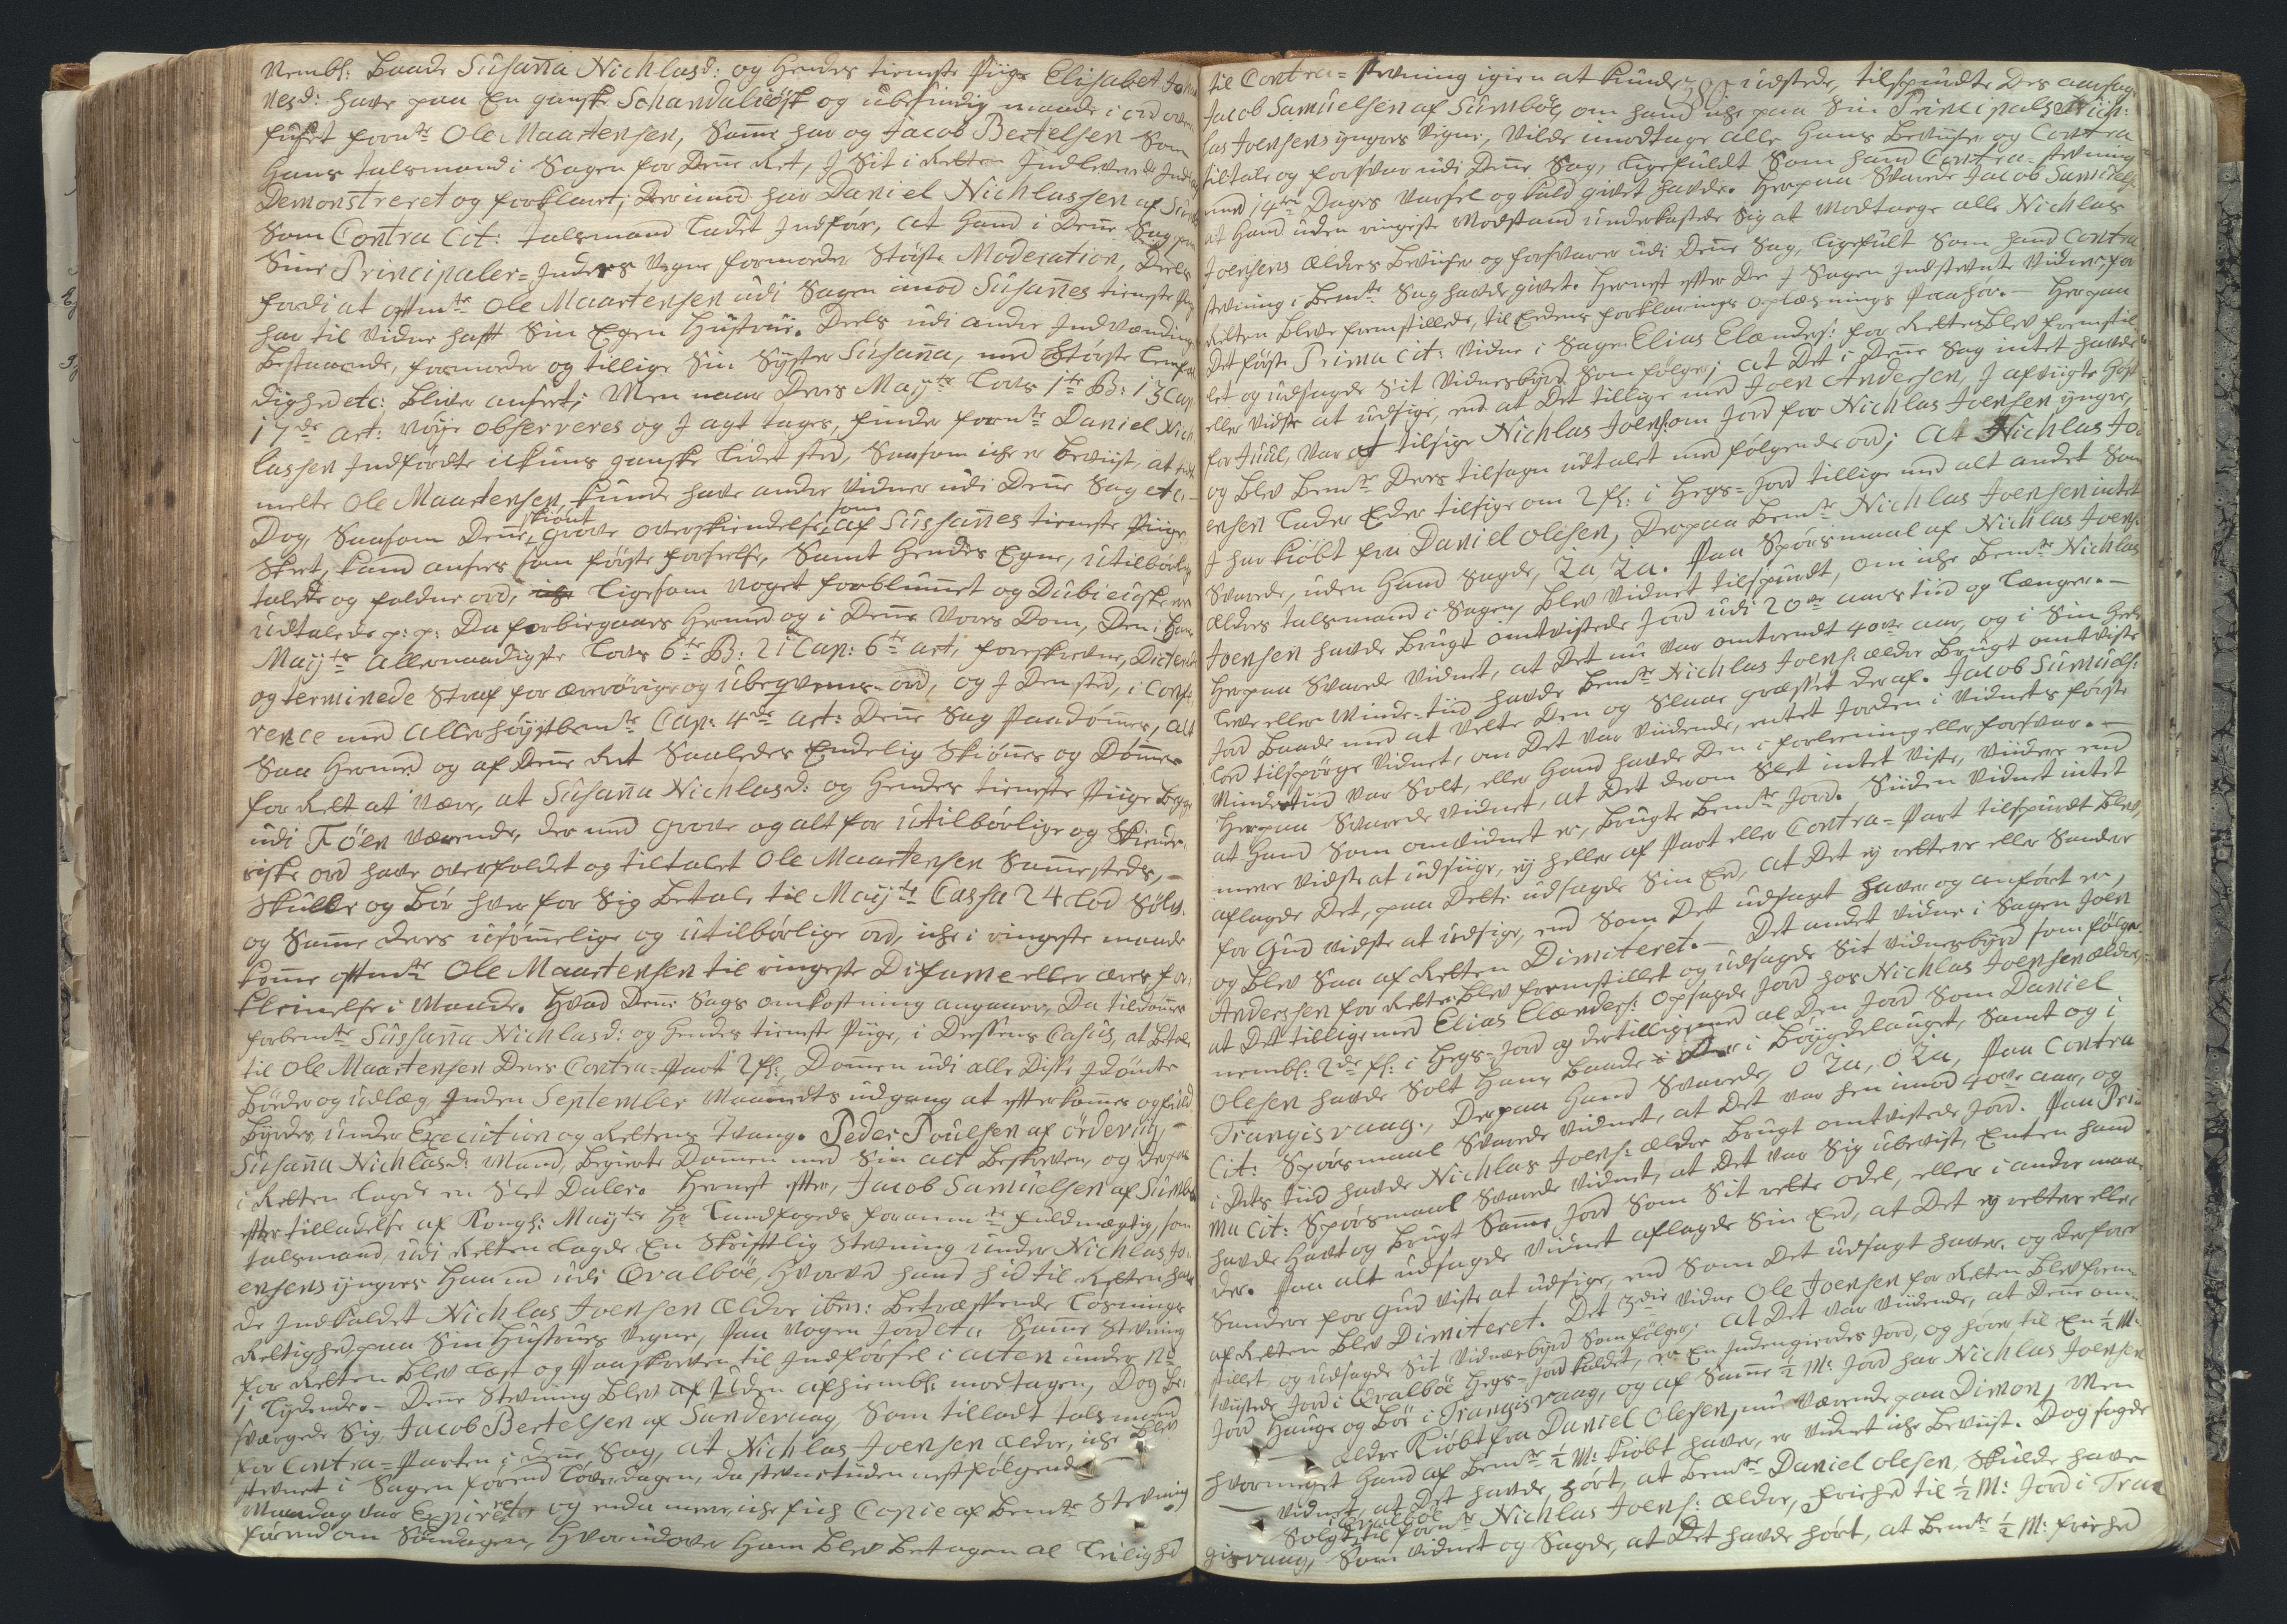 Nembl: Baade Susanna Nichlasd: og hendes tieneste Piige Elisabet Joha
nesd: have paa en gandske Schandaliøsk og ubesindig maade i ord over-
fuset fornte Ole Maartensen, Samme har og Jacob Bertelsen Som
hans talsmand i Sagen for Denne Ret, J Sit i Retten Jndleverede Jndlæg
Demonstreret og forklaret; Derimod har Daniel Nichlassen af
Som Contra Cit: talsmand ladet Jndføre, at hand i Denne Sag paa
Sine Principaler-Jnders vegne formoder Støiste Moderation, Deels
fordi at oftnte Ole Maartensen udi Sagen imod Susannes tieneste Piige
har til Vidne hafft Sin Egen Hustrue. Deels udi andre Jndvændinger
bestaaende, formoder og tillige Sin Syster Susanna, med Største Lemfæl-
dighed etc: bliver anseet; Men naar Deres Mayts Lovs 1te B: 13 Cap
17de art: nøye observeres og J agt tages, finder fornte Daniel Nich
lassen Jndførdte ickuns ganske lidet sted, Saasom iche er beviist, at
melte Ole Maartensen kunde have andre vidner udi Denne Sag etc.
Dog, Saasom Denne skiønt grove overskiendelse, som af Süssannes tieneste Piige
Skeet, kand ansees som første forseelse, Samt hendes Egne, utilbørlig
talede og faldne ord, ligesom noget forblummet og Dubieuske ere
udtalede p: p: Da forbigaaes hermed og i Denne Vores Dom, Den i Hans
Mayts allernaadigste Lovs 6te B: 21 Cap: 6te art: foreskrevne, Dicterede
og terminede Straf for ærerørige og ubeqvems-ord, og J Den sted, i Confe-
rence med allerhøystbemte Cap: 4de art: Denne Sag Paadømmes, alt
Saa hermed og af Denne Ret Saaledes Endelig Skiønnes og Dømmes
for Rett at være, at Susanna Nichlasd: og hendes tieneste Piige begge
udi Føien værende, der med grove og alt for utilbørlige og Skiende-
riske ord have overfaldet og tiltalet Ole Maartensen Sammesteds, –
Skulle og bør hver for Sig betale til Mayts Cassa 24 Lod Sølv,
og Samme deres usømmelige og utilbørlige ord, iche i ringeste maade
komme oftnte Ole Maartensen til ringeste Difame eller æres for-
kleinelse i Maade. Hvad Denne Sags omkostning angaaer, Da tildømmes
forbemte Süssanna Nichlasd: og hendes tieneste Piige, i Dessens Casus, at betale
til Ole Maartensen Deres Contra-Part 2 fl: Dommen udi alle Disse Jdømte
bøder og udlæg Jnden September Maanedts udgang at efterkommes og fuld
byrdes under Execution og Rettens Tvang. Peder Poulsen af Ørdevig, –
Susanna Nichlasd: Mand, begierte Dommen med Sin act beskreven, og derpaa
i Retten lagde en Slet Daler. Hernest efter, Jacob Samuelsen af Sumbøe
efter tilladelse af Kongl: Mayts Hr Landfogeds foranmte fuldmægtig, som
talsmand, udi Retten lagde En Skriftlig Stevning under Nichlas Jo-
ensens yngres Haand udi Qvalbøe, hvorved hand hid til Retten hav
de Jndkaldet Nichlas Joensen Ældre ibm: betræffende Løsnings
Rettighed, paa Sin Hustrues vegne, Paa nogen Jord etc. Samme Stevning
for Retten blev læst og Paaskreven til Jndførsel i acten under No
1 Lydende. – Denne Stevning blev af Siden afhiembl: modtagen, Dog be-
sværgede Sig, Jacob Bertelsen af Sandevaag, Som tilladt talsmand
for Contra-Parten i denne Sag, at Nichlas Joensen ældre, iche blev
stevnet i Sagen førend Løverdagen, da stevnetiden nestfølgende
Mandag var Expireret og enda mere, iche fich Copie af bemte Stevning
førend om Søndagen, hvorudover ham blev betagen al Leilighed
til Contra-stevning igien at kunde udstede, tilspurdte Des aarsag
Jacob Samuelsen af Sumbøe, om hand iche paa Sin Principals Nich-
las Joensens yngres vegne, vilde imodtage alle hans beviiser og Contra
tiltale og forsvar udi Denne Sag, ligefuldt Som hand Contra-stevning
med 14ten Dages Varsel og kald givet havde. Herpaa Svarede Jacob Samuelss:
at hand uden ringeste Modstand underkastede Sig at Modtage alle Nichlas
Joensens Ældres beviiser og forsvarer udi Denne Sag, ligefult Som hand Contra
stevning i bemte Sag havde givet. Hernest efter De J Sagen Jndstevnte vidner for
Retten bleve fremstillede, til Eedens forklarings oplæsnings Paahør. – Herpaa
Det første Prima Cit: vidne i Sagen Elias Elænders: for Retten blev fremstil-
let og udsagde Sit vidnesbyrd Som følger; at Det i Denne Sag intet havde
eller vidste at udsige, end at Det tillige med Joen Andersen, J afvigte høst
for Juul, var at tilsige Nichlas Joens: om Jord for Nichlas Joensen yngre,
og blev bemte Deres tilsagn udtalet med følgende ord; at Nichlas Jo-
ensen lader Eder tilsige om 2 fl: i Hegs-Jord tillige med alt andet Som
J har kiøbt fra Daniel Olesen, Derpaa bemte Nichlas Joensen intet
Svarede, uden hand Sagde, Ja, Ja. Paa Spørsmaal af Nichlas Joens:
Ældres talsmand i Sagen blev vidnet tilspurdt, om iche bemte Nichlas
Joensen havde brugt omtvistede Jord udi 20ve aars tiid og længere. –
Herpaa Svarede vidnet, at Det nu var omtrendt 40ve aar, og i Sin hele
leve eller Minde-tiid havde bemte Nichlas Joens: ældre brugt omtviste
Jord baade med at velte Den og Slaae græsset der af. Jacob Samuels:
lod tilspørge vidnet, om Det var viidende, entet Jorden i vidnets første
Mindetiid var Solt, eller hand havde Den i forlening eller forsvar. –
Herpaa Svarede vidnet, at Det derom Slet intet viste, viidere end
at hand Som omvidnet er, brugte bemte Jord. Siiden vidnet intet
mere vidste at udsige, ey heller af Part eller Contra-Part tilspurdt blev,
aflagde Det, paa Dette udsagde Sin Eed, at Det ey rettere eller Sandere
for Gud vidste at udsige, end Som Det udsagt haver og anført er,
og blev Saa af Retten Dimiteret. – Det andet vidne i Sagen Joen
Anderssen for Retten blev fremstillet og udsagde Sit vidnesbyrd som følger:
at Det tillige med Elias Elænders: opsagde Jord hos Nichlas Joensen ældre,
nembl: 2de fl: i Hegs-Jord og der tilligemed al Den Jord Som Daniel
Olesen havde Solt ham, baade i Bøygdelauget, Samt og i
Trangisvaag., Derpaa hand Svarede, O Ja, O Ja, Paa Contra
Cit: Spørsmaal Svarede vidnet, at Det var hen imod 40ve aar, og
i Dets tiid havde Nichlas Joens: ældre brugt omtvistede Jord. Paa Pri-
ma Cit: Spørsmaal Svarede vidnet, at Det var Sig ubevist, Enten hand
havde havt og brugt Samme Jord Som Sit rette odel, eller i andre maa-
der. Paa alt udsagde vidnet aflagde Sin Eed, at Det ey rettere eller
Sandere for Gud viste at udsige, end Som Det udsagt haver. og derfore
af Retten blev Dimiteret. Det 3die vidne Ole Joensen for Retten blev frem-
stillet og udsagde Sit Vidnesbyrd Som følger: at Det var viidende, at Denne om-
tvistede Jord i Qvalbøe Hegs-Jord kaldet, er En Jndengierdes Jord, og hører til En ½ M:
Jord Hauge og Bøe i Trangisvaag, og af Samme ½ M: Jord har Nichlas Joensen
Ældre Kiøbt fra Daniel Olesen, nu værende paa Dimon, Men
hvormeget hand af bemte ½ M: kiøbt haver, er vidnet iche beviist. Dog sagde
vidnet, at Det havde hørt, at bemte Daniel Olesen, Skulde have
Solgt til fornte i Qvalbøe Nichlas Joens: Ældre, friehed til ½ M: Jord i Tran
gisvaag, Som vidnet og Sagde, at Det havde hørt, at bemte ½ M: friehed